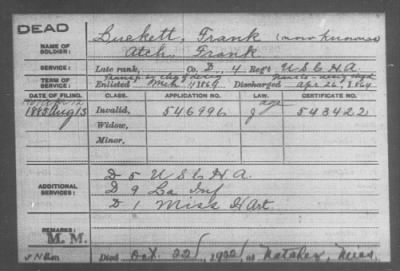 DEAD
NAME OF SOLDIER:
Buckett, Frank
Atch, Frank
SERVICE:
Late rank, Co. D, 4 Reg't U.S.C.H.A.
TERM OF SERVICE:
Enlisted 1864 Discharged Apr 26, 1864
DATE OF FILING. CLASS. APPLICATION NO. LAW. CERTIFICATE NO.
1885 Aug 13 Invalid, 546996 J 543422
Widow,
Minor,
ADDITIONAL SERVICES:
D 5 U.S.C.H.A.
D 9 La Inf
D 1 Miss H Art
REMARKS:
M. M.
Died Oct. 22, 1922, at Natchez, Miss.